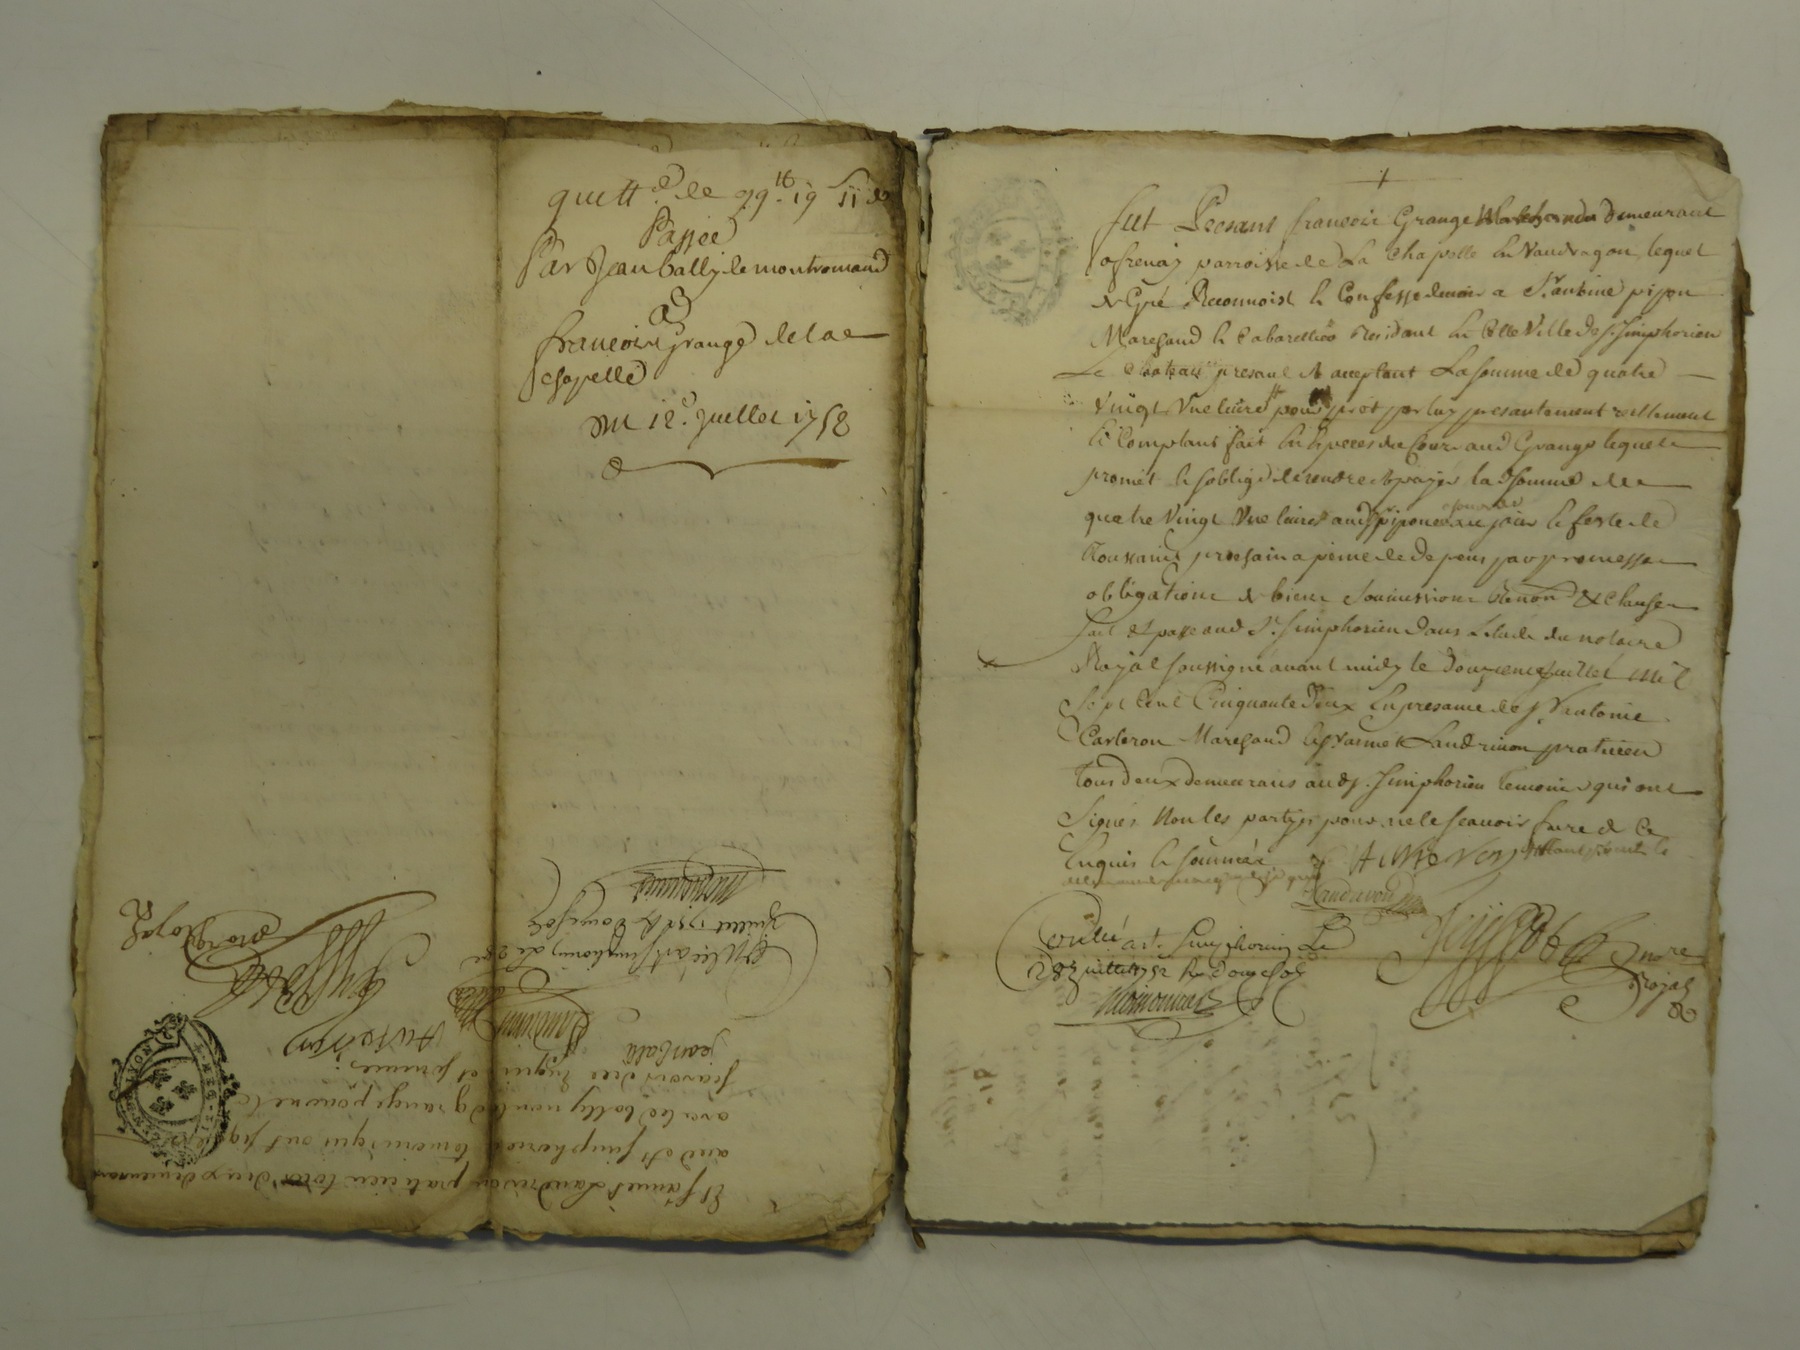 quitt.e de 99 tt 19 s 11 d
Passée
Par Jean bally de montromand
A
francois grange de la
chapelle
Du 12e. Juillet 1752
Et s. aimé Landrivon praticien tous deux demeurans
aud st simphorien temoins qui ont signé
avec led bally non led grange pour ne le
scavoir dece enquis et sommé.
jean bala
Royal
Controlé a st simphorien le 28e
Juillet 1752 R. douze sols
+
fut Present francois Grange demeurant
parroisse de La Chapelle en Vaudragon, lequel
de Gré Reconnoist et Confesse devoir a Sr. antoine pipon
Marchand et Cabarettier Residant en cette Ville de st. simphorien
Le chateau present et acceptant La somme de quatre
Vingt Une livre pour prêt par luy presantement reellement
et Comptant fait en Especes du Cour aud Grange lequel
promet et s'oblige de rendre et payer la d somme de
quatre Vingt Une livre aud pipon au jour et feste de
Toussaint prochain a peine de depens par promesse
obligations de biens soumissions Renon.on & Clauses
fait et passé aud st. simphorien dans L'etude du notaire
Royal soussigné avant midy le Douzieme juillet mil
sept Cent Cinquante Deux En presance de sr antoine
Marchand et sr aimé Landrivon praticien
tous deux demeurans aud st. simphorien temoins qui ont
signés Non les partyes pour ne le scavoir faire de ce
Enquis et sommées
Landrivon
Controlé a st. simphorien Le
28 Juillet 1752 R. Douze sols
nore
Royal